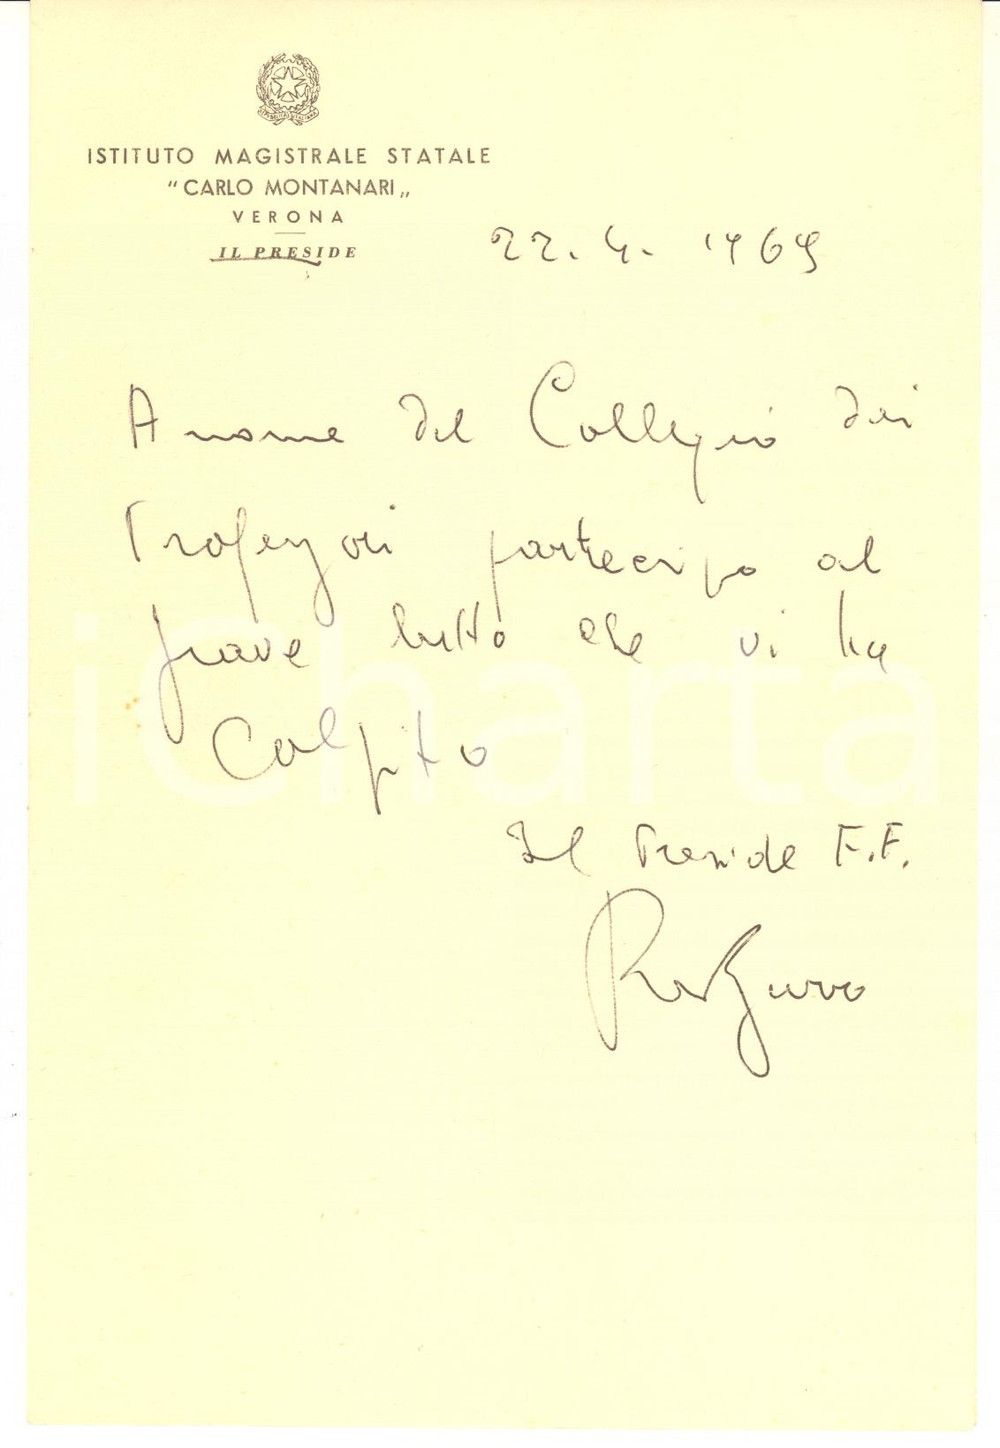 REPUBBLICA ITALIANA
ISTITUTO MAGISTRALE STATALE
"CARLO MONTANARI„
VERONA
IL PRESIDE
22.4.1969
A nome del Collegio dei
Professori partecipo al
grave lutto che vi ha
Colpito
Il Preside F.F.
iCharta